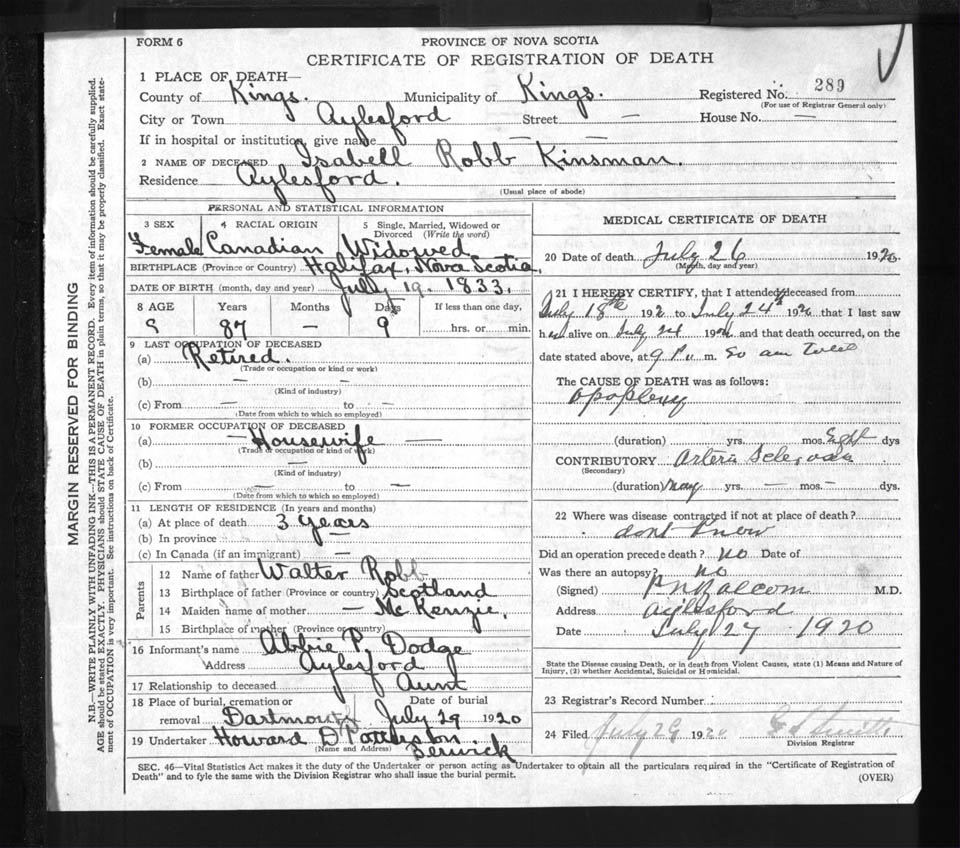 FORM 6
PROVINCE OF NOVA SCOTIA
CERTIFICATE OF REGISTRATION OF DEATH
1 PLACE OF DEATH—
County of Kings. Municipality of Kings. Registered No. 289
(For use of Registrar General only)
City or Town Aylesford Street — House No. —
If in hospital or institution, give name — —
2 NAME OF DECEASED Isabell Robb Kinsman.
Residence Aylesford.
(Usual place of abode)
PERSONAL AND STATISTICAL INFORMATION
3 SEX 4 RACIAL ORIGIN 5 Single, Married, Widowed or Divorced (Write the word)
Female Canadian Widowed
BIRTHPLACE (Province or Country) Halifax, Nova Scotia.
DATE OF BIRTH (month, day and year) July 19. 1833.
8 AGE Years Months Days If less than one day,
87 — 9 hrs. or min.
9 LAST OCCUPATION OF DECEASED
(a) Retired.
(Trade or occupation or kind or work)
(b) — —
(Kind of industry)
(c) From — to —
(Date from which to which so employed)
10 FORMER OCCUPATION OF DECEASED
(a) — Housewife —
(Trade or occupation or kind of work)
(b) —
(Kind of industry)
(c) From — to —
(Date from which to which so employed)
11 LENGTH OF RESIDENCE (In years and months)
(a) At place of death 3 years
(b) In province —
(c) In Canada (if an immigrant) —
Parents
12 Name of father Walter Robb
13 Birthplace of father (Province or country) Scotland
14 Maiden name of mother — McKenzie.
15 Birthplace of mother (Province or country)
16 Informant's name Abbie P. Dodge
Address Aylesford
17 Relationship to deceased Aunt
18 Place of burial, cremation or removal Dartmouth Date of burial July 29 1920
19 Undertaker Howard D
(Name and Address) Berwick
MEDICAL CERTIFICATE OF DEATH
20 Date of death July 26 1920.
(Month, day and year)
21 I HEREBY CERTIFY, that I attended deceased from
July 18th 192 to July 24th 192 that I last saw
h alive on July 24 192 and that death occurred, on
date stated above, at 9 P m.
The CAUSE OF DEATH was as follows:
apoplexy
(duration) yrs. mos. Eight dys
CONTRIBUTORY
(Secondary)
(duration) many yrs. — mos. — dys.
22 Where was disease contracted if not at place of death?
dont know
Did an operation precede death? no Date of
Was there an autopsy? no
(Signed) Balcom M.D.
Address Aylesford
Date July 27 1920
State the Disease causing Death, or in death from Violent Causes, state (1) Means and Nature of
Injury, (2) whether Accidental, Suicidal or Homicidal.
23 Registrar's Record Number
24 Filed July 29 1920
Division Registrar
SEC. 46—Vital Statistics Act makes it the duty of the Undertaker or person acting as Undertaker to obtain all the particulars required in the "Certificate of Registration of
Death" and to fyle the same with the Division Registrar who shall issue the burial permit.
(OVER)
MARGIN RESERVED FOR BINDING
N.B.—WRITE PLAINLY WITH UNFADING INK—THIS IS A PERMANENT RECORD. Every item of information should be carefully supplied.
AGE should be stated EXACTLY. PHYSICIANS should STATE CAUSE OF DEATH in plain terms, so that it may be properly classified. Exact state-
ment of OCCUPATION is very important. See instructions on back of Certificate.